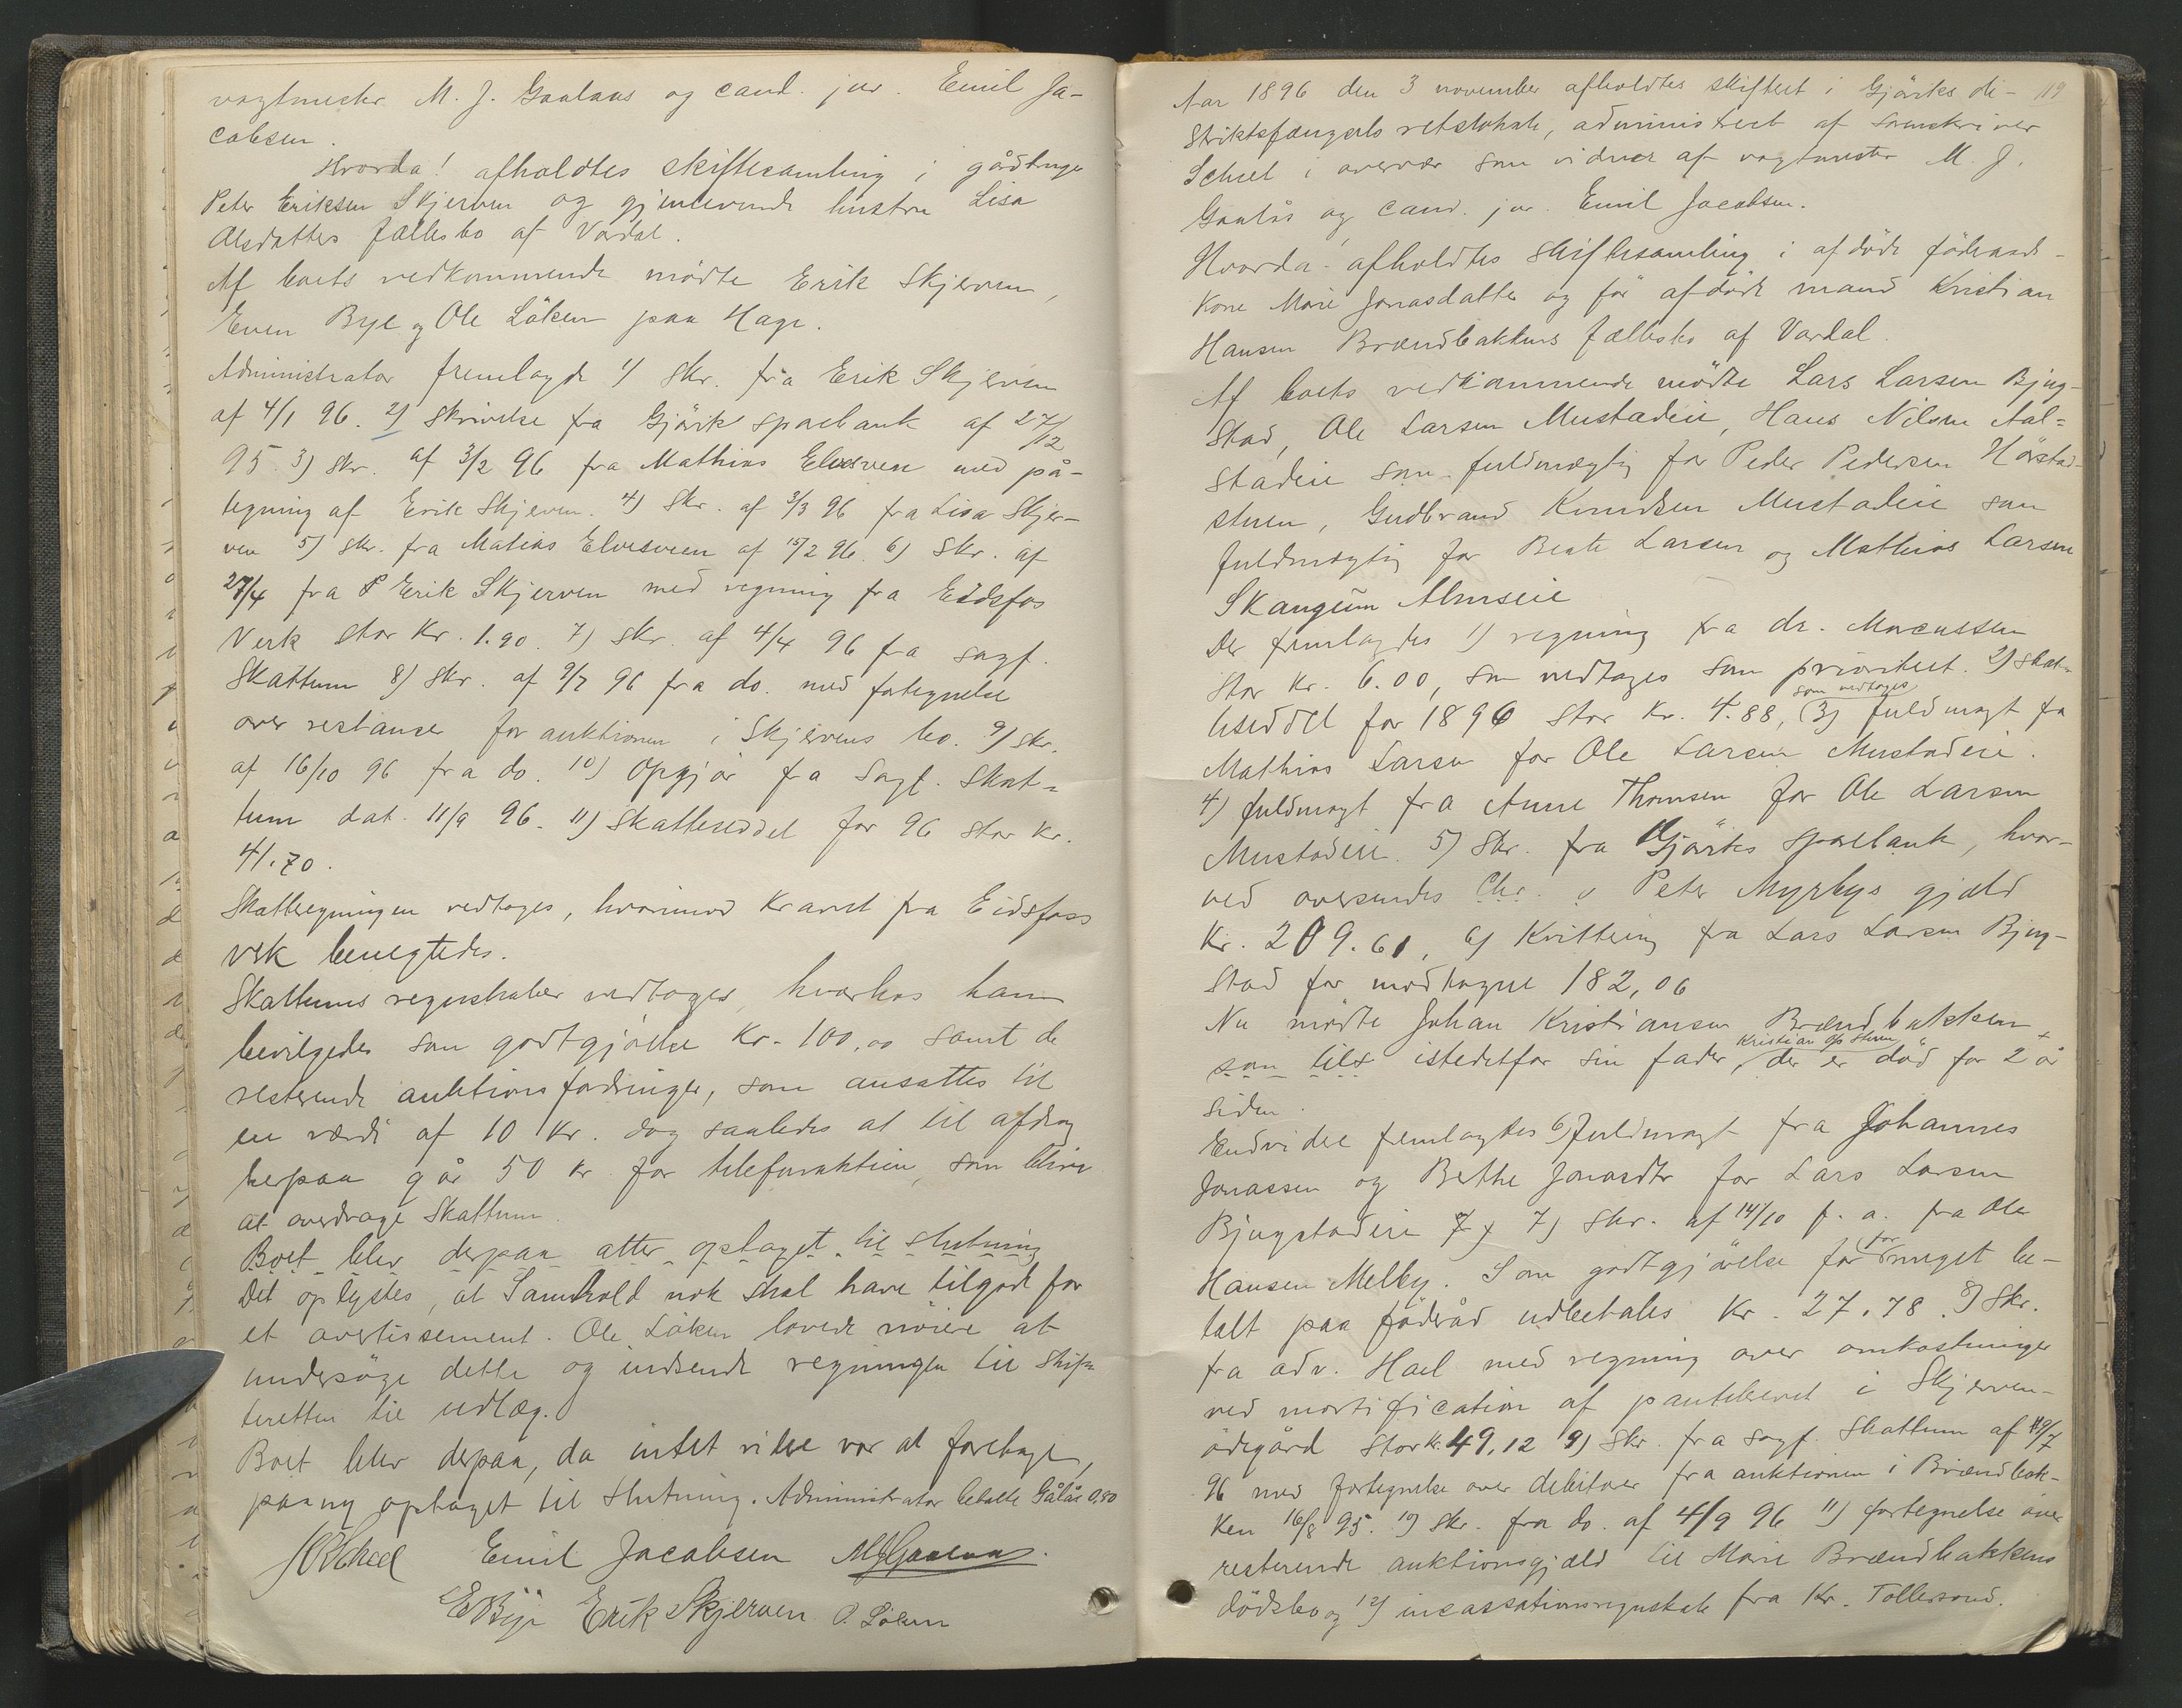 vagtmester M. J. Gaalaas og cand. jur. Emil Ja-
cobsen.
Hvorda! afholdtes skiftesamling i gårdbruger
Peter Eriksen Skjerven og gjenlevende hustru Lisa
Olsdatters fællesbo af Vardal.
Af boets vedkommende mødte Erik Skjerven,
Even Bye og Ole Löken paa Hage.
Administrator fremlagde 1) skr. fra Erik Skjerven
af 4/1 96. 2) skrivelse fra Gjövik sparebank af 27/12
95. 3) skr. af 3/2 96 fra Mathias Elvesveen med på-
tegning af Erik Skjerven. 4) Skr. af 3/3 96 fra Lisa Skjer-
ven 5) skr. fra Matias Elvesveen af 15/2 96. 6) skr. af
27/4 fra Erik Skjerven med regning fra Eidsfos
Verk stor Kr. 1.90. 7) skr. af 4/4 96 fra sagf.
Skattum 8) skr. af 9/7 96 fra do. med fortegnelse
over restanser for auktionen i Skjervens bo. 9) skr.
af 16/10 96 fra do. 10) Opgjör fra Sagf. Skat-
tum dat. 11/9 96. 11) Skatteseddel for 96 stor Kr.
41.70.
Skatteregningen vedtoges, hvorimod kravet fra Eidsfoss
verk benegtedes.
Skattums regnskaber vedtoges, hvorhos ham
bevilgedes som godtgjörelse Kr. 100,00 samt de
resterende auktionsfordringer, som ansattes til
en værdi af 10 Kr. dog saaledes at til afdrag
herpaa går 50 kr for telefonaktien, som bliver
at overdrage Skattum.
Boet blev derpaa atter optaget til slutning
Det oplystes, at Samhold nok skal have tilgode for
et avertissement. Ole Löken lovede nöiere at
undersöge dette og indsende regningen til skif-
teretten til udlæg.
Boet blev derpaa, da intet videre var at foretage,
paany optaget til slutning. Administrator betalte Gålås 0,80
Scheel Emil Jacobsen MJGaalaas.
EBye Erik Skjerven O. Löken
119
Aar 1896 den 3 november afholdtes skifteret i Gjöviks di-
striktsfængsels retslokale, administreret af sorenskriver
Scheel i overvær som vidner af vagtmester M. J.
Gaalås og cand. jur. Emil Jacobsen.
Hvorda: afholdtes skiftesamling i afdöde föderaads-
kone Marie Jonasdatter og för afdöde mand Kristian
Hansen Brændbakkens fællesbo af Vardal.
Af boets vedkommende mödte Lars Larsen Bjug-
stad, Ole Larsen Mustadeie, Hans Nilsen Aal-
stadeie som fuldmægtig for Peder Pedersen Hörstad-
stuen, Gudbrand Knudsen Mustadeie som
fuldmægtig for Beate Larsen og Mathias Larsen
Skangum Almseie
Der fremlagdes 1) regning fra dr. Marcussen
stor Kr. 6.00, som vedtages som prioriteret. 2) skat-
teseddel for 1896 stor Kr. 4.88, som vedtoges 3) fuldmagt fra
Mathias Larsen for Ole Larsen Mustadeie.
4) fuldmagt fra Anne Thomsen for Ole Larsen
Mustadeie. 5) Skr. fra Gjöviks sparebank, hvor-
ved oversendes Chr. o Peter Myrbys gjæld
Kr. 209.61, 6) Kvittering fra Lars Larsen Bjug-
stad for modtagne 182,06
Nu mödte Johan Kristiansen Brændbakken
som istedetfor sin fader, der er död for 2 år
siden.
Endvidere fremlagdes 6) fuldmagt fra Johannes
Jonassen og Berthe Jonasdtr for Lars Larsen
Bjugstadeie 7) skr. af 14/10 f. a. fra Ole
Hansen Melby. Som godtgjörelse for for meget be-
talt paa föderåd udbetales Kr. 27.78. 8) Skr.
fra adv. Hoel med regning over omkostninger
ved mortification af pantebrevet i Skjerven-
ödegård stor kr. 49,12 9) Skr. fra sagf. Skattum af 9/7
96 med fortegnelse over debitorer fra auktionen i Brændbak-
ken 16/8 95. 10) skr. fra do. af 4/9 96 11) fortegnelse over
resterende auktionsgjæld til Marie Brændbakkens
dödsbo og 12) incassationsregnskab fra Kr. Tollersrud.